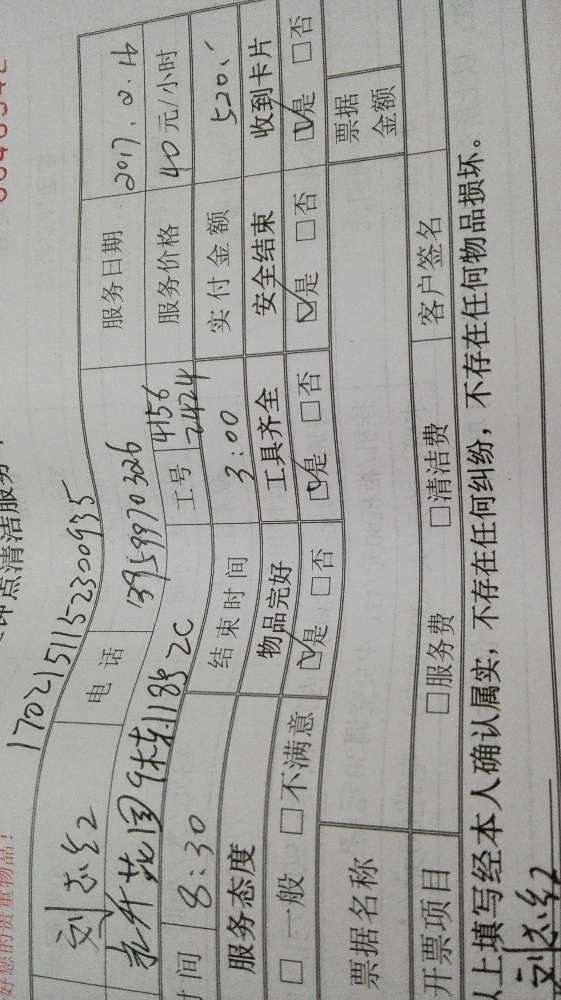 好您的贵重物品！
印点清洁服务
17021511152300935
刘志红 电话 13959970326 服务日期 2017.2.16
花园 1185 2C 工号 4156 2424 服务价格 40元/小时
时间 8:30 结束时间 3:00 实付金额 520.
服务态度 物品完好 工具齐全 安全结束 收到卡片
□一般 □不满意 ☑是 □否 ☑是 □否 ☑是 □否 ☑是 □否
票据名称 票据金额
开票项目 □服务费 □清洁费 客户签名
以上填写经本人确认属实，不存在任何纠纷，不存在任何物品损坏。
刘志红